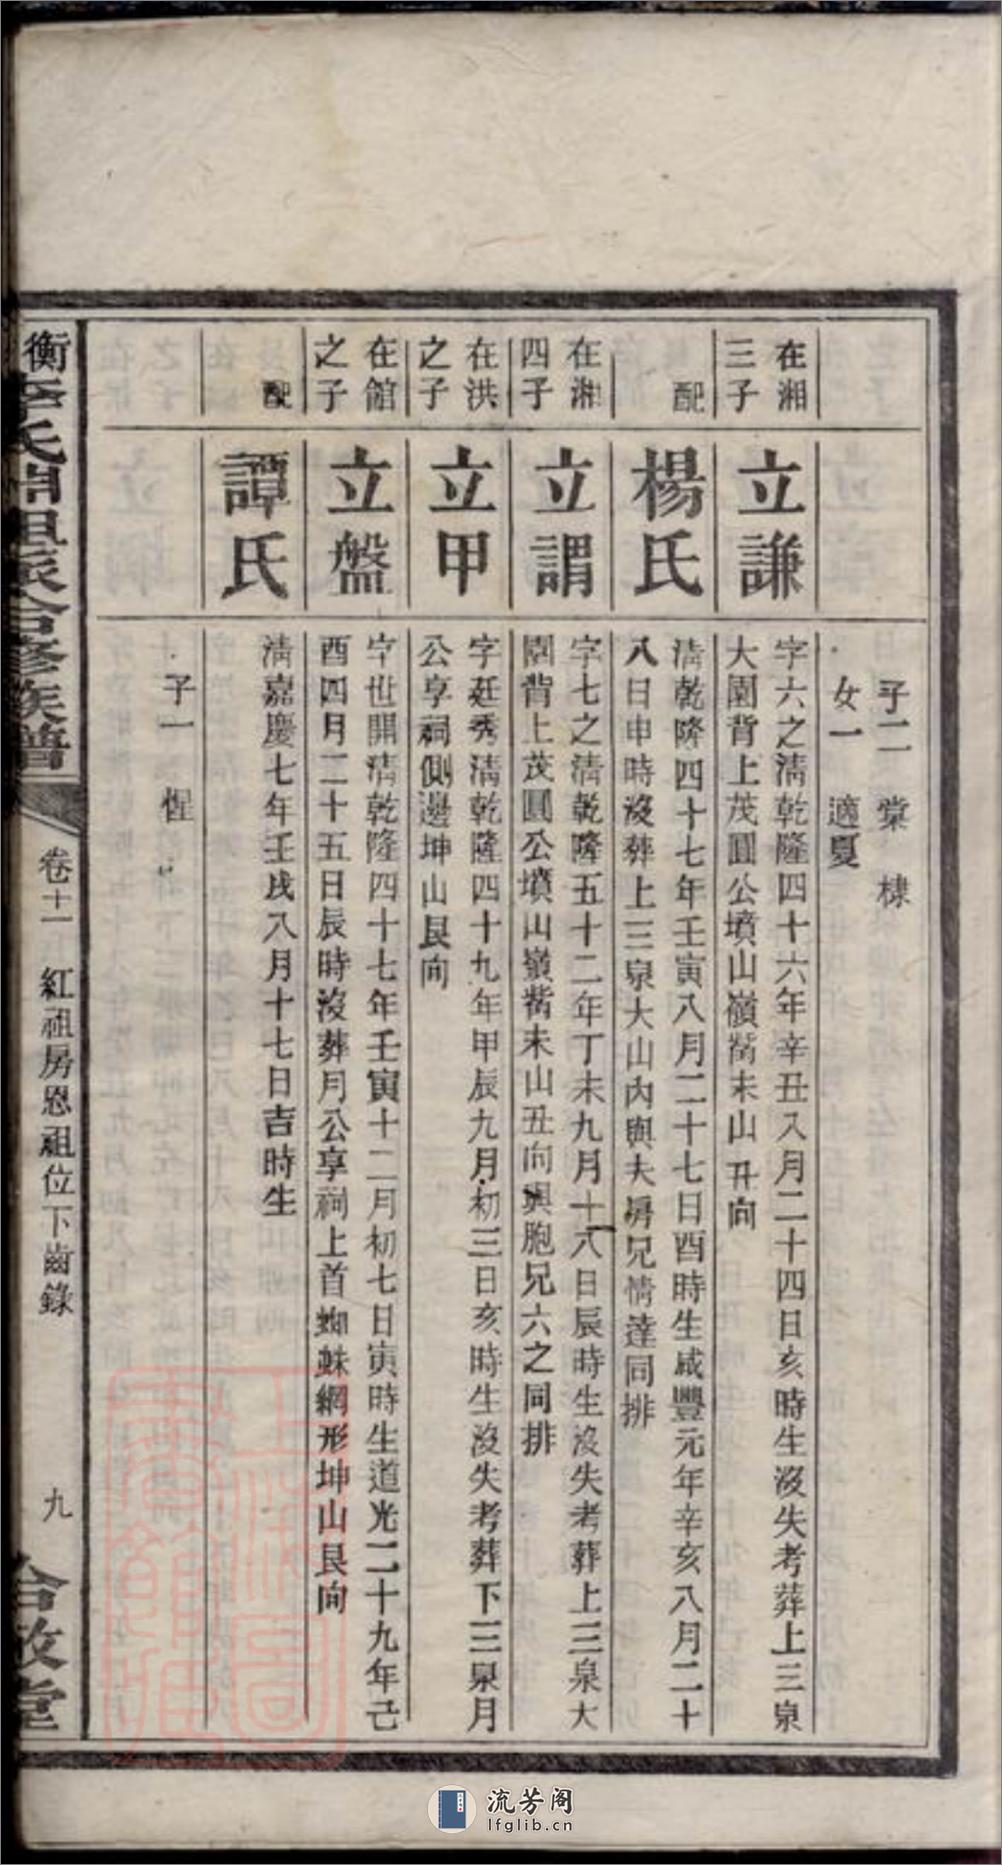 子二 棠 棣
女一 適夏
在湘
三子
立謙
字六之淸乾隆四十六年辛丑八月二十四日亥時生沒失考葬上三泉
大園背上茂圓公墳山嶺嘴未山丑向
配
楊氏
淸乾隆四十七年壬寅八月二十七日酉時生咸豐元年辛亥八月二十
八日申時沒葬上三泉大山內與夫房兄情達同排
在湘
四子
立謂
字七之淸乾隆五十二年丁未九月十八日辰時生沒失考葬上三泉大
園背上茂圓公墳山嶺嘴未山丑向與胞兄六之同排
在洪
之子
立甲
字廷秀淸乾隆四十九年甲辰九月初三日亥時生沒失考葬下三泉月
公享祠側邊坤山艮向
在館
之子
立盤
字世開淸乾隆四十七年壬寅十二月初七日寅時生道光二十九年己
酉四月二十五日辰時沒葬月公享祠上首蜘蛛網形坤山艮向
配
譚氏
淸嘉慶七年壬戌八月十七日吉時生
子一 惺
衡 氏 合修族譜
卷十一 紅祖房恩祖位下齒錄
九
合敬堂
流芳阁
lfglib.cn